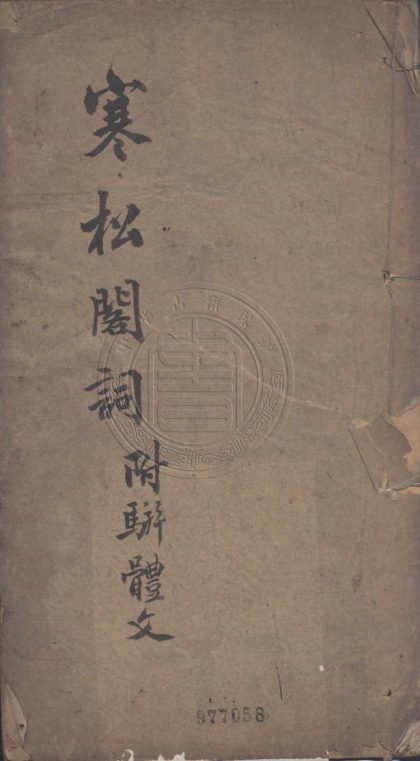 寒松閣詞
附駢體文
977058